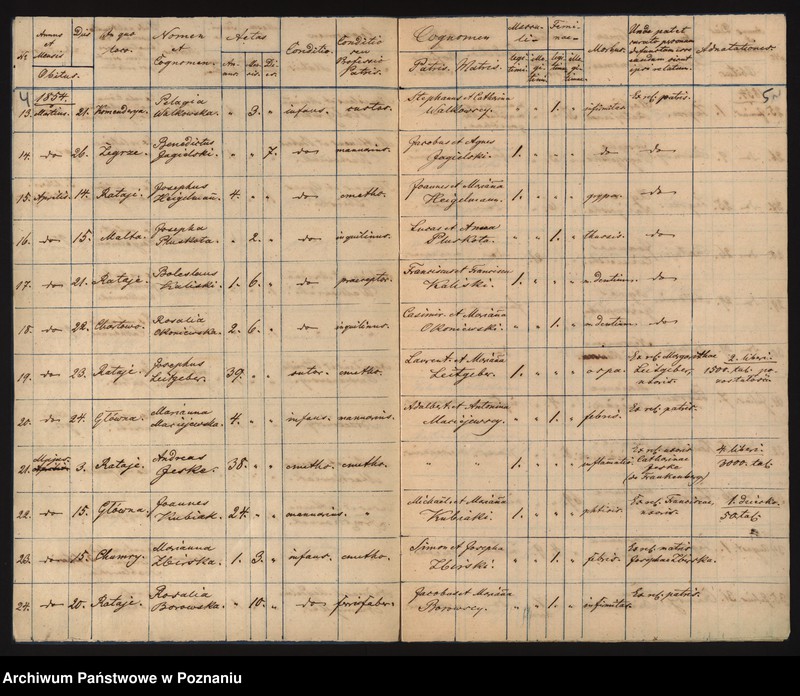 Nr. Annus et Mensis Obitus. Dies In quo loco. Nomen et Cognomen. Aetas Anni. Menses. Dies. Conditio. Conditio seu Professio Patris.
Cognomen Patris. Matris. Masculi- Legitimi. Illegitimi. Feminae- Legitimae. Illegitimae. Morbus. Adnotationes.
4 1854. 5
13. Martius. 21. Komenderya. Pelagia Walkowska. " 3. " infans. custos. Stephanus et Catharina Walkowscy. " " 1. " infirmitas. Ex rel. patris.
14. do 26. Żegrze. Benedictus Jagielski. " " 7. do mannarius. Jacobus et Agnes Jagielski. 1. " " " do do
15. Aprilis. 14. Rataje. Josephus Heigelmann. 4. " " do cmetho. Joannes et Marianna Heigelmann. 1. " " " do
16. do 15. Malta. Josepha Pluskota. " 2. " do inquilinus. Lucas et Anna Pluskota. " " 1. " thussis. do
17. do 21. Rataje. Boleslaus Kaliski. 1. 6. " do praeceptor. Franciscus et Francisca Kaliski. 1. " " " dentium do
18. do 22. Chartowo. Rosalia Okoniewska. 2. 6. " do inquilinus. Casimir. et Marianna Okoniewski. " " 1. " dentium do
19. do 23. Rataje. Josephus Leitgeber. 39. " " sutor. cmetho. Laurent. et Marianna Leitgeber. 1. " " " ospa. Ex rel. Margarethae Leitgeber, uxoris. 2. liberi. 1500. tal.
20. do 24. Główna. Marianna Maciejewska. 4. " " infans. mannarius. Adalbert. et Antonina Maciejewscy. " " 1. " febris. Ex rel. patris.
21. Majus. 3. Rataje. Andreas Jeske. 38. " " cmetho. cmetho. " " 1. " " " inflammatio. Ex rel. uxoris Catharinae Jeske (de Frankenberg) 4. liberi. 3000. tal.
22. do 15. Główna. Joannes Kubiak. 24. " " mannarius. " Michaël. et Marianna Kubiaki. 1. " " " phtisis. Ex rel. Franciscae, uxoris. 1. dziecko. 50 tal.
23. do 15. Chumry. Marianna Zbierska. 1. 3. " infans. cmetho. Simon et Josepha Zbierski. " " 1. " febris. Ex rel. matris Josephae Zbierska.
24. do 20. Rataje. Rosalia Borowska. " 10. " do ferrifaber. Jacobus et Marianna Borowscy. " " 1. " infirmitas. Ex rel. patris.
Archiwum Państwowe w Poznaniu